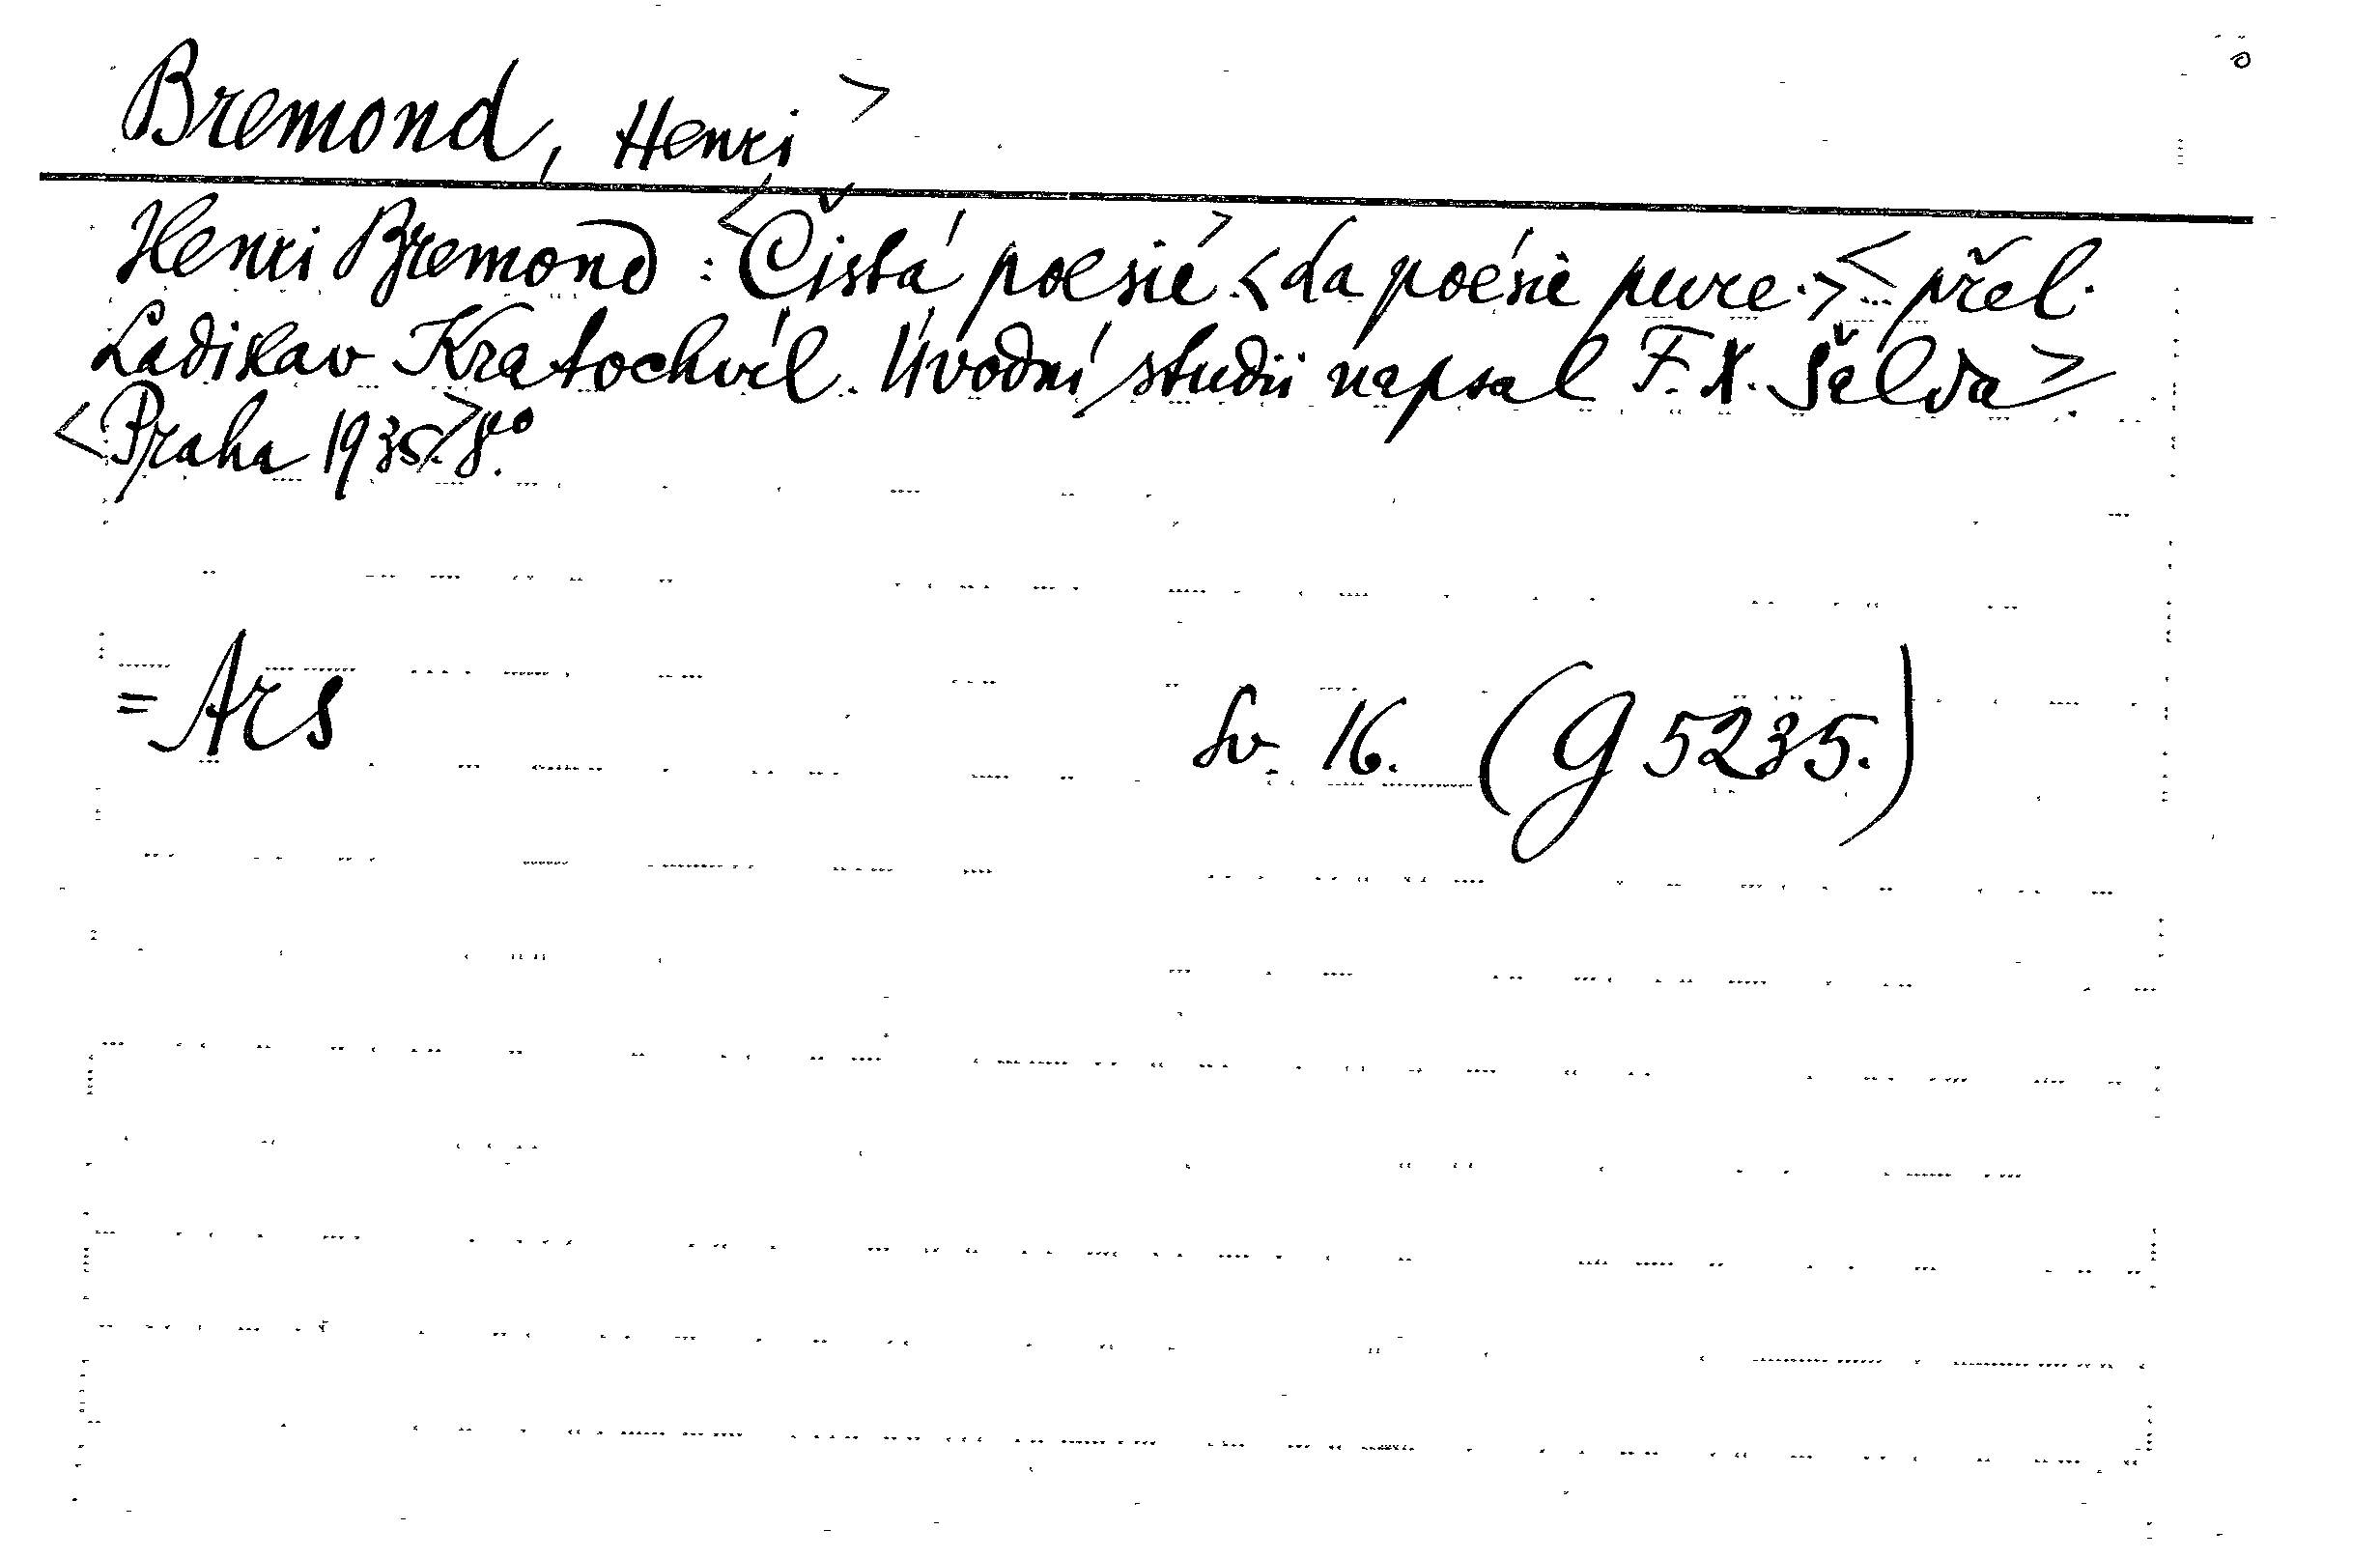 Bremond, Henri >
Henri Bremond : <Čistá poesie> <La poésie pure.> <přel.
Ladislav Kratochvíl. Úvodní studii napsal F. X. Šalda>.
<Praha 1935.> 8°.
= Ars Sv. 16. (G 5235.)